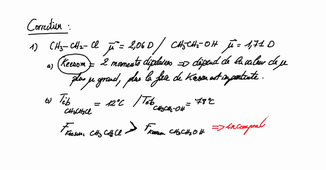 Correction :
1) CH3-CH2-Cl μ⃗ = 2,06 D / CH3CH2-OH μ⃗ = 1,71 D
a) Keesom = 2 moments dipolaires => dépend de la valeur de μ
plus μ grand, plus la force de Keesom est importante.
b) Teb CH3CH2Cl = 12°C / Teb CH3CH2-OH = 78°C
F Keesom CH3CH2Cl > F Keesom CH3CH2OH =>